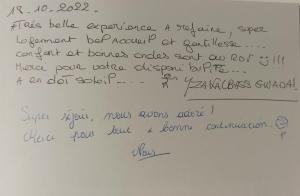 18.10.2022.
Très belle experience A refaire, super
logement bel Accueil et gentillesse....
confort et bonnes ondes sont au RDV !!!
Merci pour votre disponibilité....
A en doi soleil....
Super séjour, nous avons adoré !
Merci pour tout & bonne continuation.